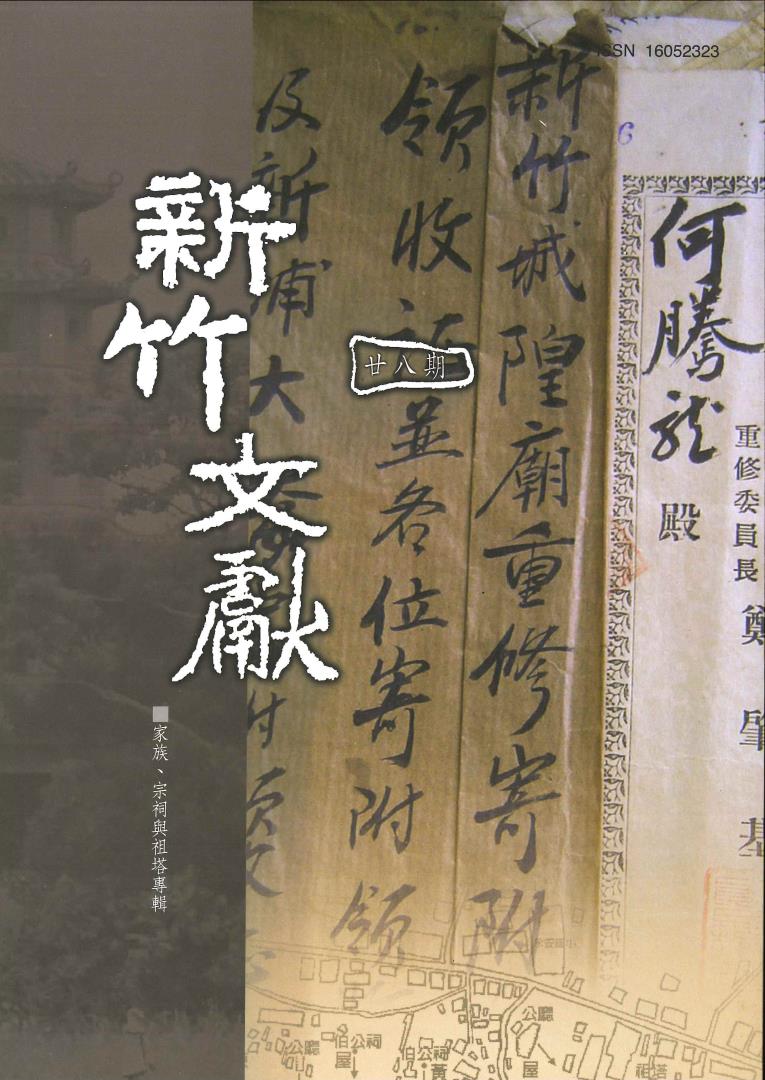 ISSN 16052323
6
何騰龍 殿
重修委員長 鄭肇基
新竹城隍廟重修寄附
領收証並各位寄附領
及新埔大
付
新竹文獻
廿八期
家族、宗祠與祖塔專輯
公廳
公廳
伯公祠
屋
伯公祠
黃
屋
祖塔